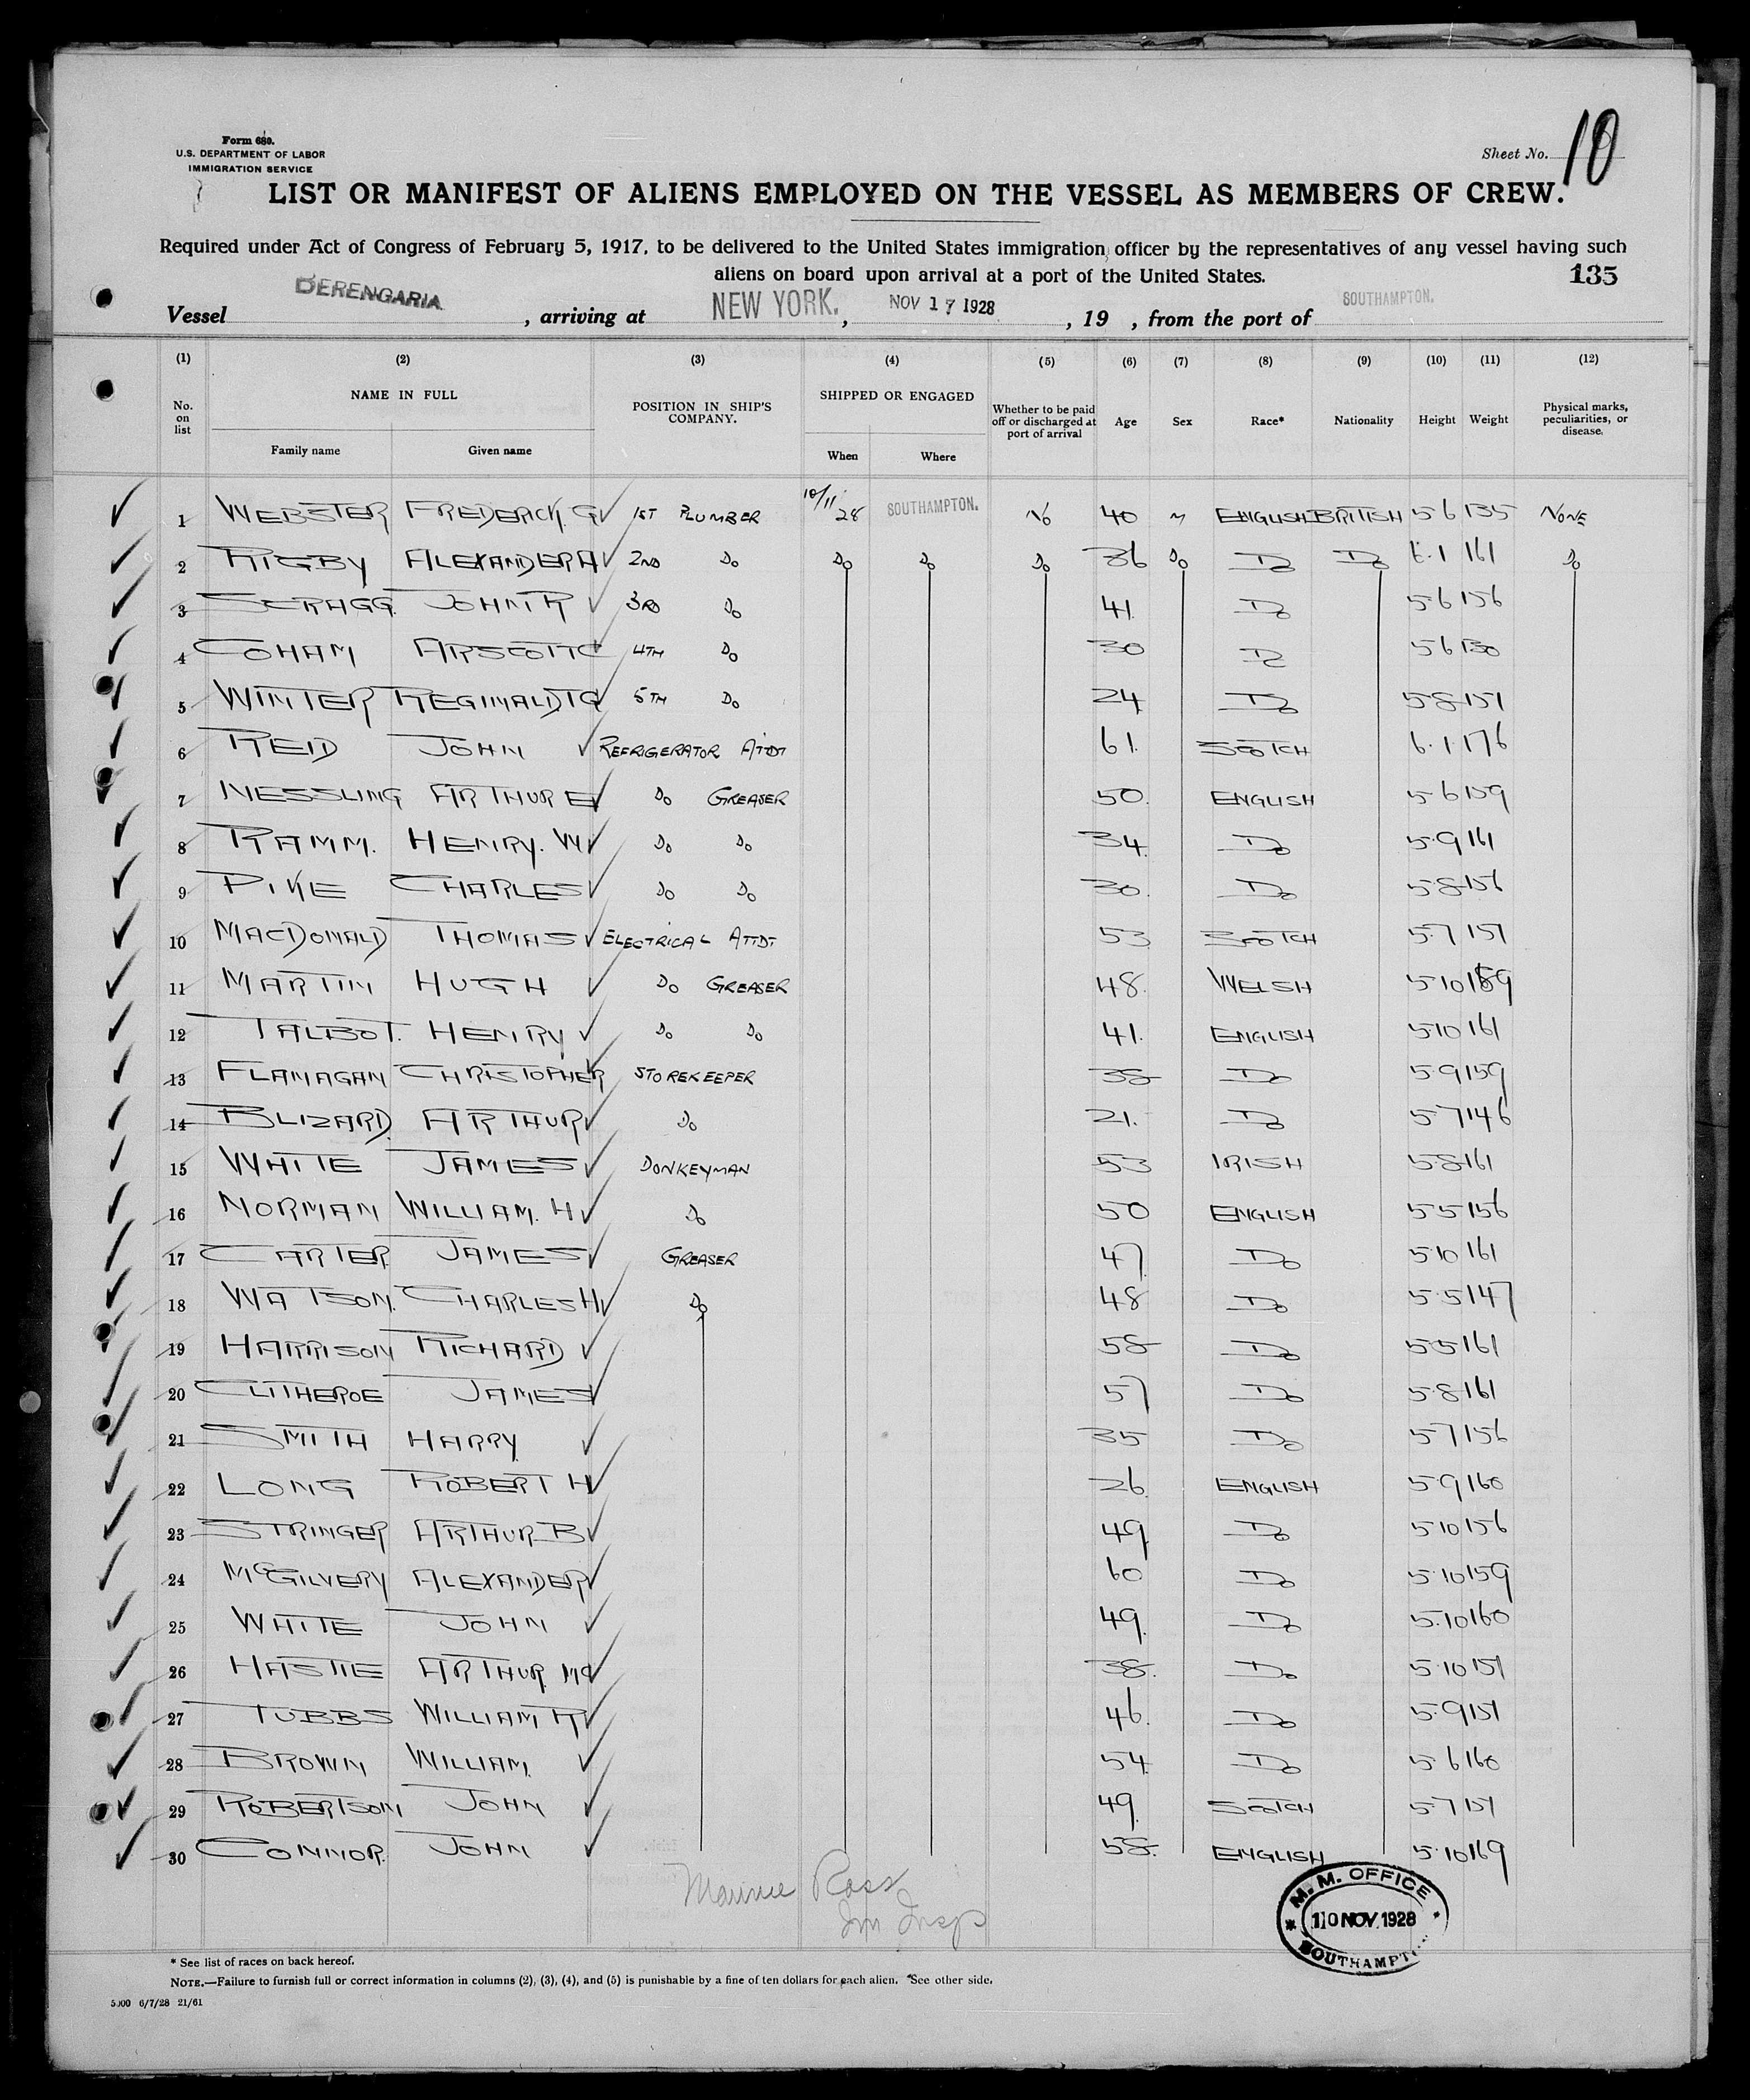 Form 680.
U.S. DEPARTMENT OF LABOR
IMMIGRATION SERVICE
Sheet No. 10
LIST OR MANIFEST OF ALIENS EMPLOYED ON THE VESSEL AS MEMBERS OF CREW.
Required under Act of Congress of February 5, 1917, to be delivered to the United States immigration officer by the representatives of any vessel having such
aliens on board upon arrival at a port of the United States.
135
Vessel BERENGARIA, arriving at NEW YORK., NOV 17 1928, 19 , from the port of SOUTHAMPTON.
(1) (2) (3) (4) (5) (6) (7) (8) (9) (10) (11) (12)
No. on list NAME IN FULL Family name Given name POSITION IN SHIP'S COMPANY. SHIPPED OR ENGAGED When Where Whether to be paid off or discharged at port of arrival Age Sex Race* Nationality Height Weight Physical marks, peculiarities, or disease.
1 WEBSTER FREDERICK. G 1ST PLUMBER 10/11/28 SOUTHAMPTON. NO 40 M ENGLISH BRITISH 5 6 135 NONE
2 RIGBY ALEXANDER A 2ND Do Do Do Do 36 Do Do Do 6.1 161 Do
3 SCRAGG. JOHN R 3RD Do 41. Do 5.6 156
4 COHAM ARSCOTT C 4TH Do 30 Do 5 6 130
5 WINTER REGINALD T G 5TH Do 24 Do 5.8 151
6 REID JOHN REFRIGERATOR ATTDT 61. SCOTCH 6.1. 176
7 NESSLING ARTHUR E Do GREASER 50. ENGLISH 5.6 159
8 RAMM. HENRY. W Do Do 34. Do 5.9 161
9 PIKE CHARLES Do Do 30. Do 5.8 156
10 MACDONALD THOMAS ELECTRICAL ATTDT 53 SCOTCH 5.7 151
11 MARTIN HUGH Do GREASER 48. WELSH 5.10
12 TALBOT. HENRY Do Do 41. ENGLISH 5.10 161
13 FLANAGAN CHRISTOPHER STOREKEEPER 38 Do 5.9 159
14 BLIZARD. ARTHUR Do 21. Do 5.7 146
15 WHITE JAMES DONKEYMAN 53 IRISH 5.8 161
16 NORMAN WILLIAM. H Do 50 ENGLISH 5.5 156
17 CARTER JAMES GREASER 47 Do 5.10 161
18 WATSON. CHARLES H Do 48 Do 5.5 147
19 HARRISON RICHARD 58 Do 5.5 161
20 CLITHEROE JAMES 57 Do 5.8 161
21 SMITH HARRY 35 Do 5.7 156
22 LONG ROBERT H 26. ENGLISH 5.9 160
23 STRINGER ARTHUR B 49 Do 5.10 156
24 McGILVERY ALEXANDER 60 Do 5.10 159
25 WHITE JOHN 49. Do 5.10 160
26 HASTIE ARTHUR Mc 38. Do 5.10 151
27 TUBBS WILLIAM R 46. Do 5.9 151
28 BROWN WILLIAM. 54 Do 5.6 160
29 ROBERTSON JOHN 49. SCOTCH 5.7 151
30 CONNOR. JOHN 58. ENGLISH 5.10 169
Ross
Im Insp
M. M. OFFICE
10 NOV. 1928
SOUTHAMPTON
* See list of races on back hereof.
NOTE.—Failure to furnish full or correct information in columns (2), (3), (4), and (5) is punishable by a fine of ten dollars for each alien. *See other side.
5000 6/7/28 21/61